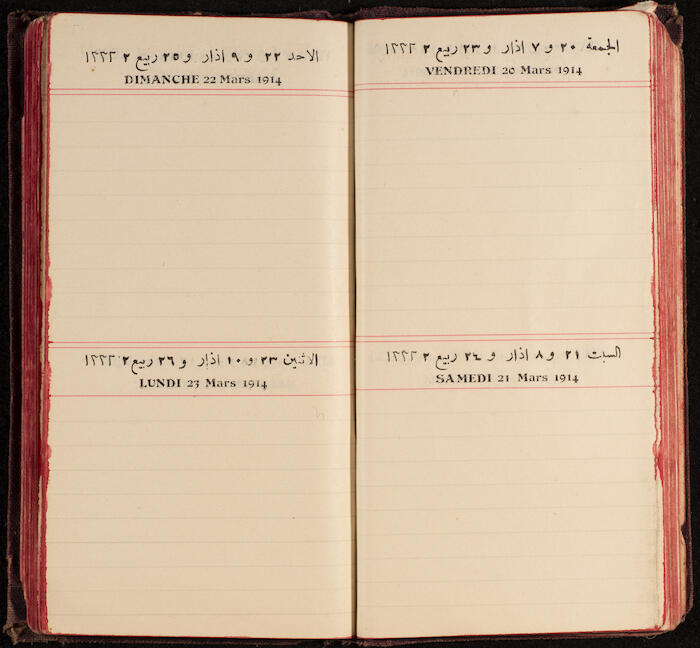 الجمعة ٢٠ و ٧ اذار و ٢٣ ربيع ٢ ١٣٣٢
VENDREDI 20 Mars 1914
السبت ٢١ و ٨ اذار و ٢٤ ربيع ٢ ١٣٣٢
SAMEDI 21 Mars 1914
الاحد ٢٢ و ٩ اذار و ٢٥ ربيع ٢ ١٣٣٢
DIMANCHE 22 Mars 1914
الاثنين ٢٣ و ١٠ اذار و ٢٦ ربيع ٢ ١٣٣٢
LUNDI 23 Mars 1914